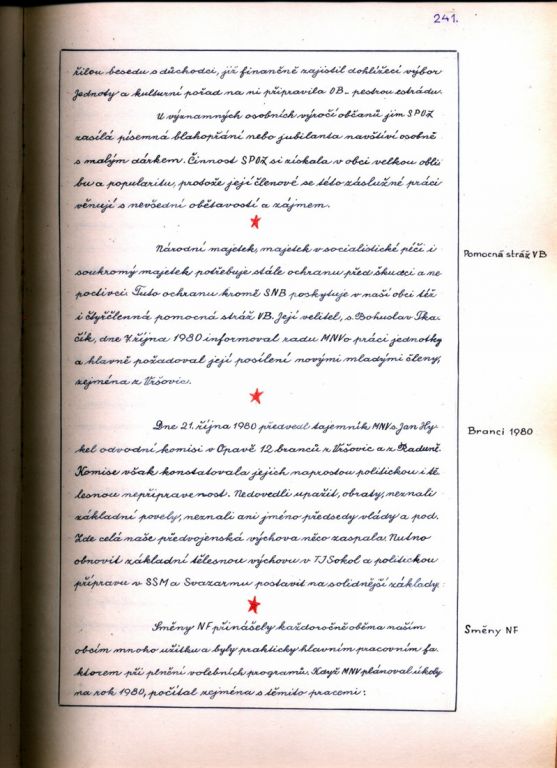 241.
řilou besedu s důchodci, již finančně zajistil dohlížecí výbor
Jednoty a kulturní pořad na ni připravila OB.. pestrou estrádu.
U významných osobních výročí občanů jim SPOZ
zasílá písemná blahopřání nebo jubilanta navštíví osobně
s malým dárkem. Činnost SPOZ si získala v obci velkou obli
bu a popularitu, protože její členové se této záslužné práci
věnují s nevšední obětavostí a zájmem.
Národní majetek, majetek v socialistické péči i
soukromý majetek potřebuje stále ochranu před škůdci a ne
poctivci. Tuto ochranu kromě SNB poskytuje v naší obci též
i čtyřčlenná pomocná stráž VB. Její velitel, s. Bohuslav Tka
čík, dne 7. října 1980 informoval radu MNV o práci jednotky
a hlavně požadoval její posílení novými mladými členy,
zejména z Vršovic.
Pomocná stráž VB
Dne 21. října 1980 předvedl tajemník MNV s. Jan Hy
kel odvodní komisi v Opavě 12 branců z Vršovic a z Raduně.
Komise však konstatovala jejich naprostou politickou i tě
lesnou nepřipravenost. Nedovedli upažit, obraty, neznali
základní povely, neznali ani jméno předsedy vlády a pod.
Zde celá naše předvojenská výchova něco zaspala. Nutno
obnovit základní tělesnou výchovu v TJ Sokol a politickou
přípravu v SSM a Svazarmu postavit na solidnější základy.
Branci 1980
Směny NF přinášely každoročně oběma našim
obcím mnoho užitku a byly prakticky hlavním pracovním fa
ktorem při plnění volebních programů. Když MNV plánoval úkoly
na rok 1980, počítal zejména s těmito pracemi:
Směny NF